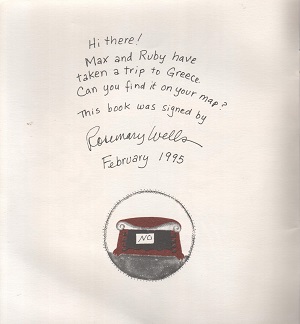 Hi there!
Max and Ruby have
taken a trip to Greece.
Can you find it on your map?
This book was signed by
Rosemary Wells
February 1995
NO